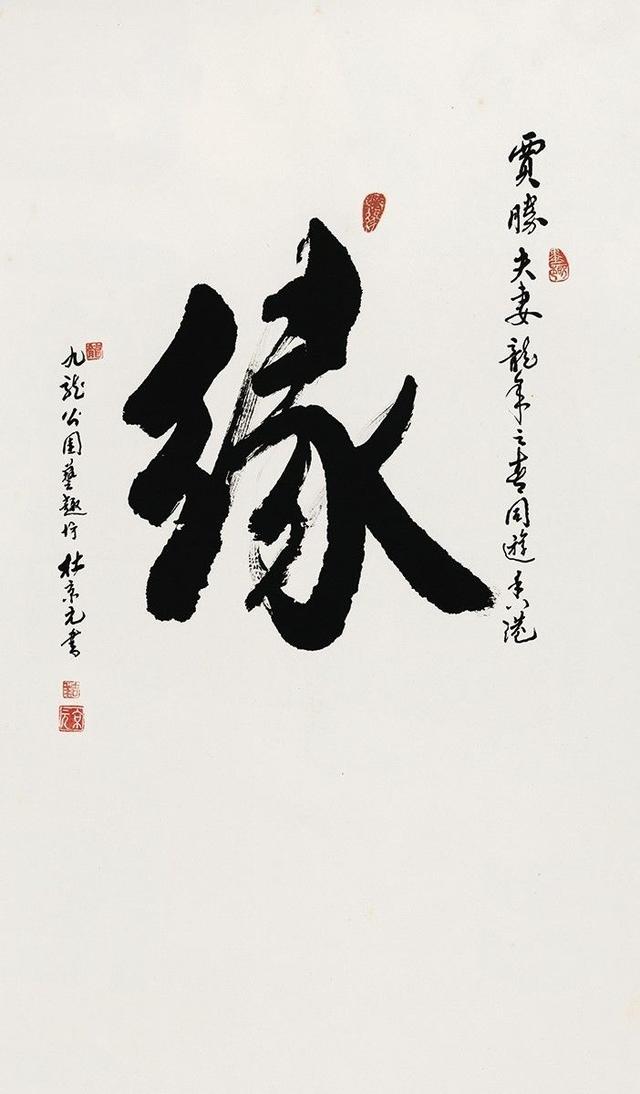 賈勝夫妻龍年之春同遊香港
緣
九龍公園藝趣坊杜京元書